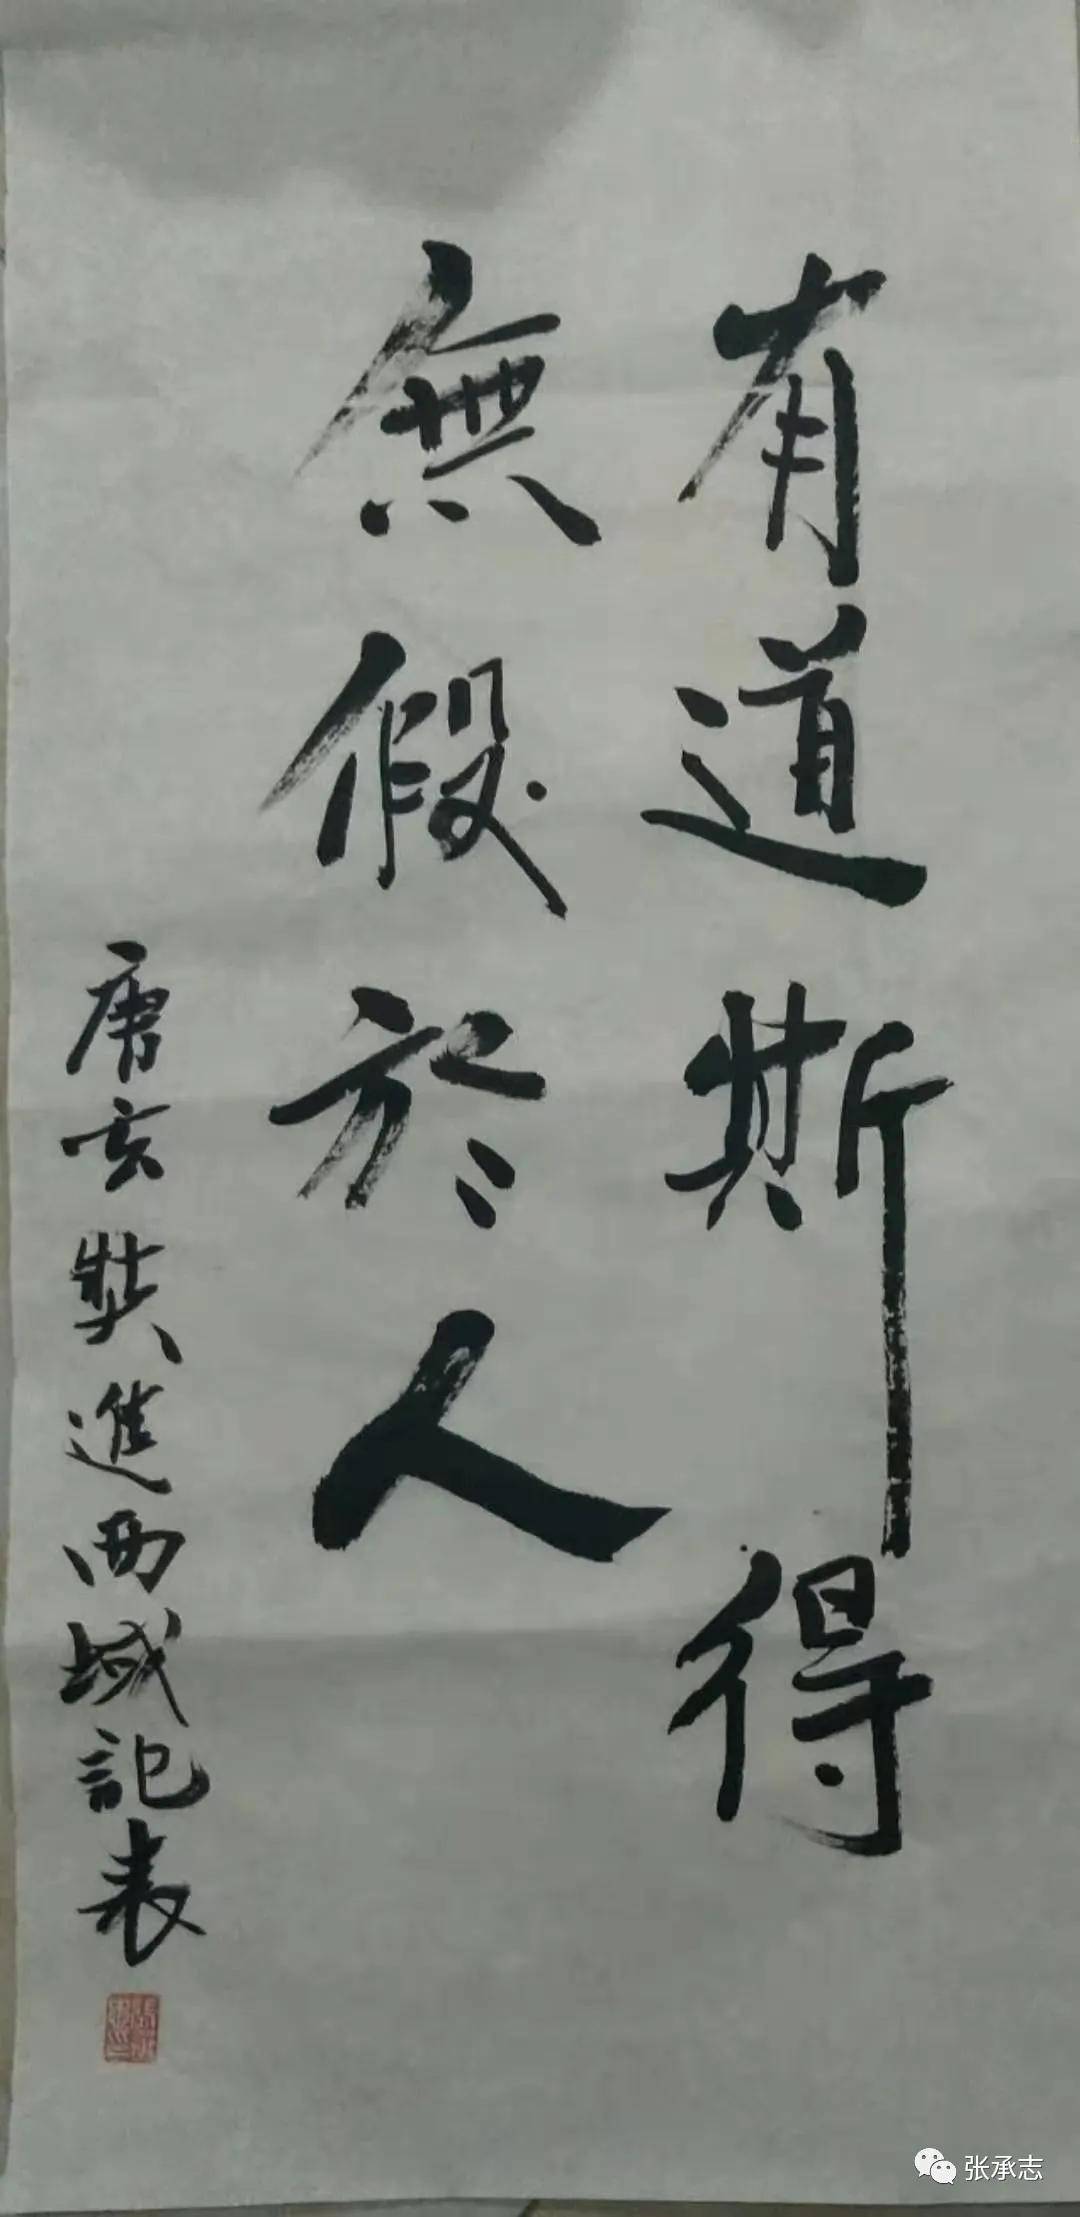 有道斯得
無假於人
唐玄奘進西域記表
张承志